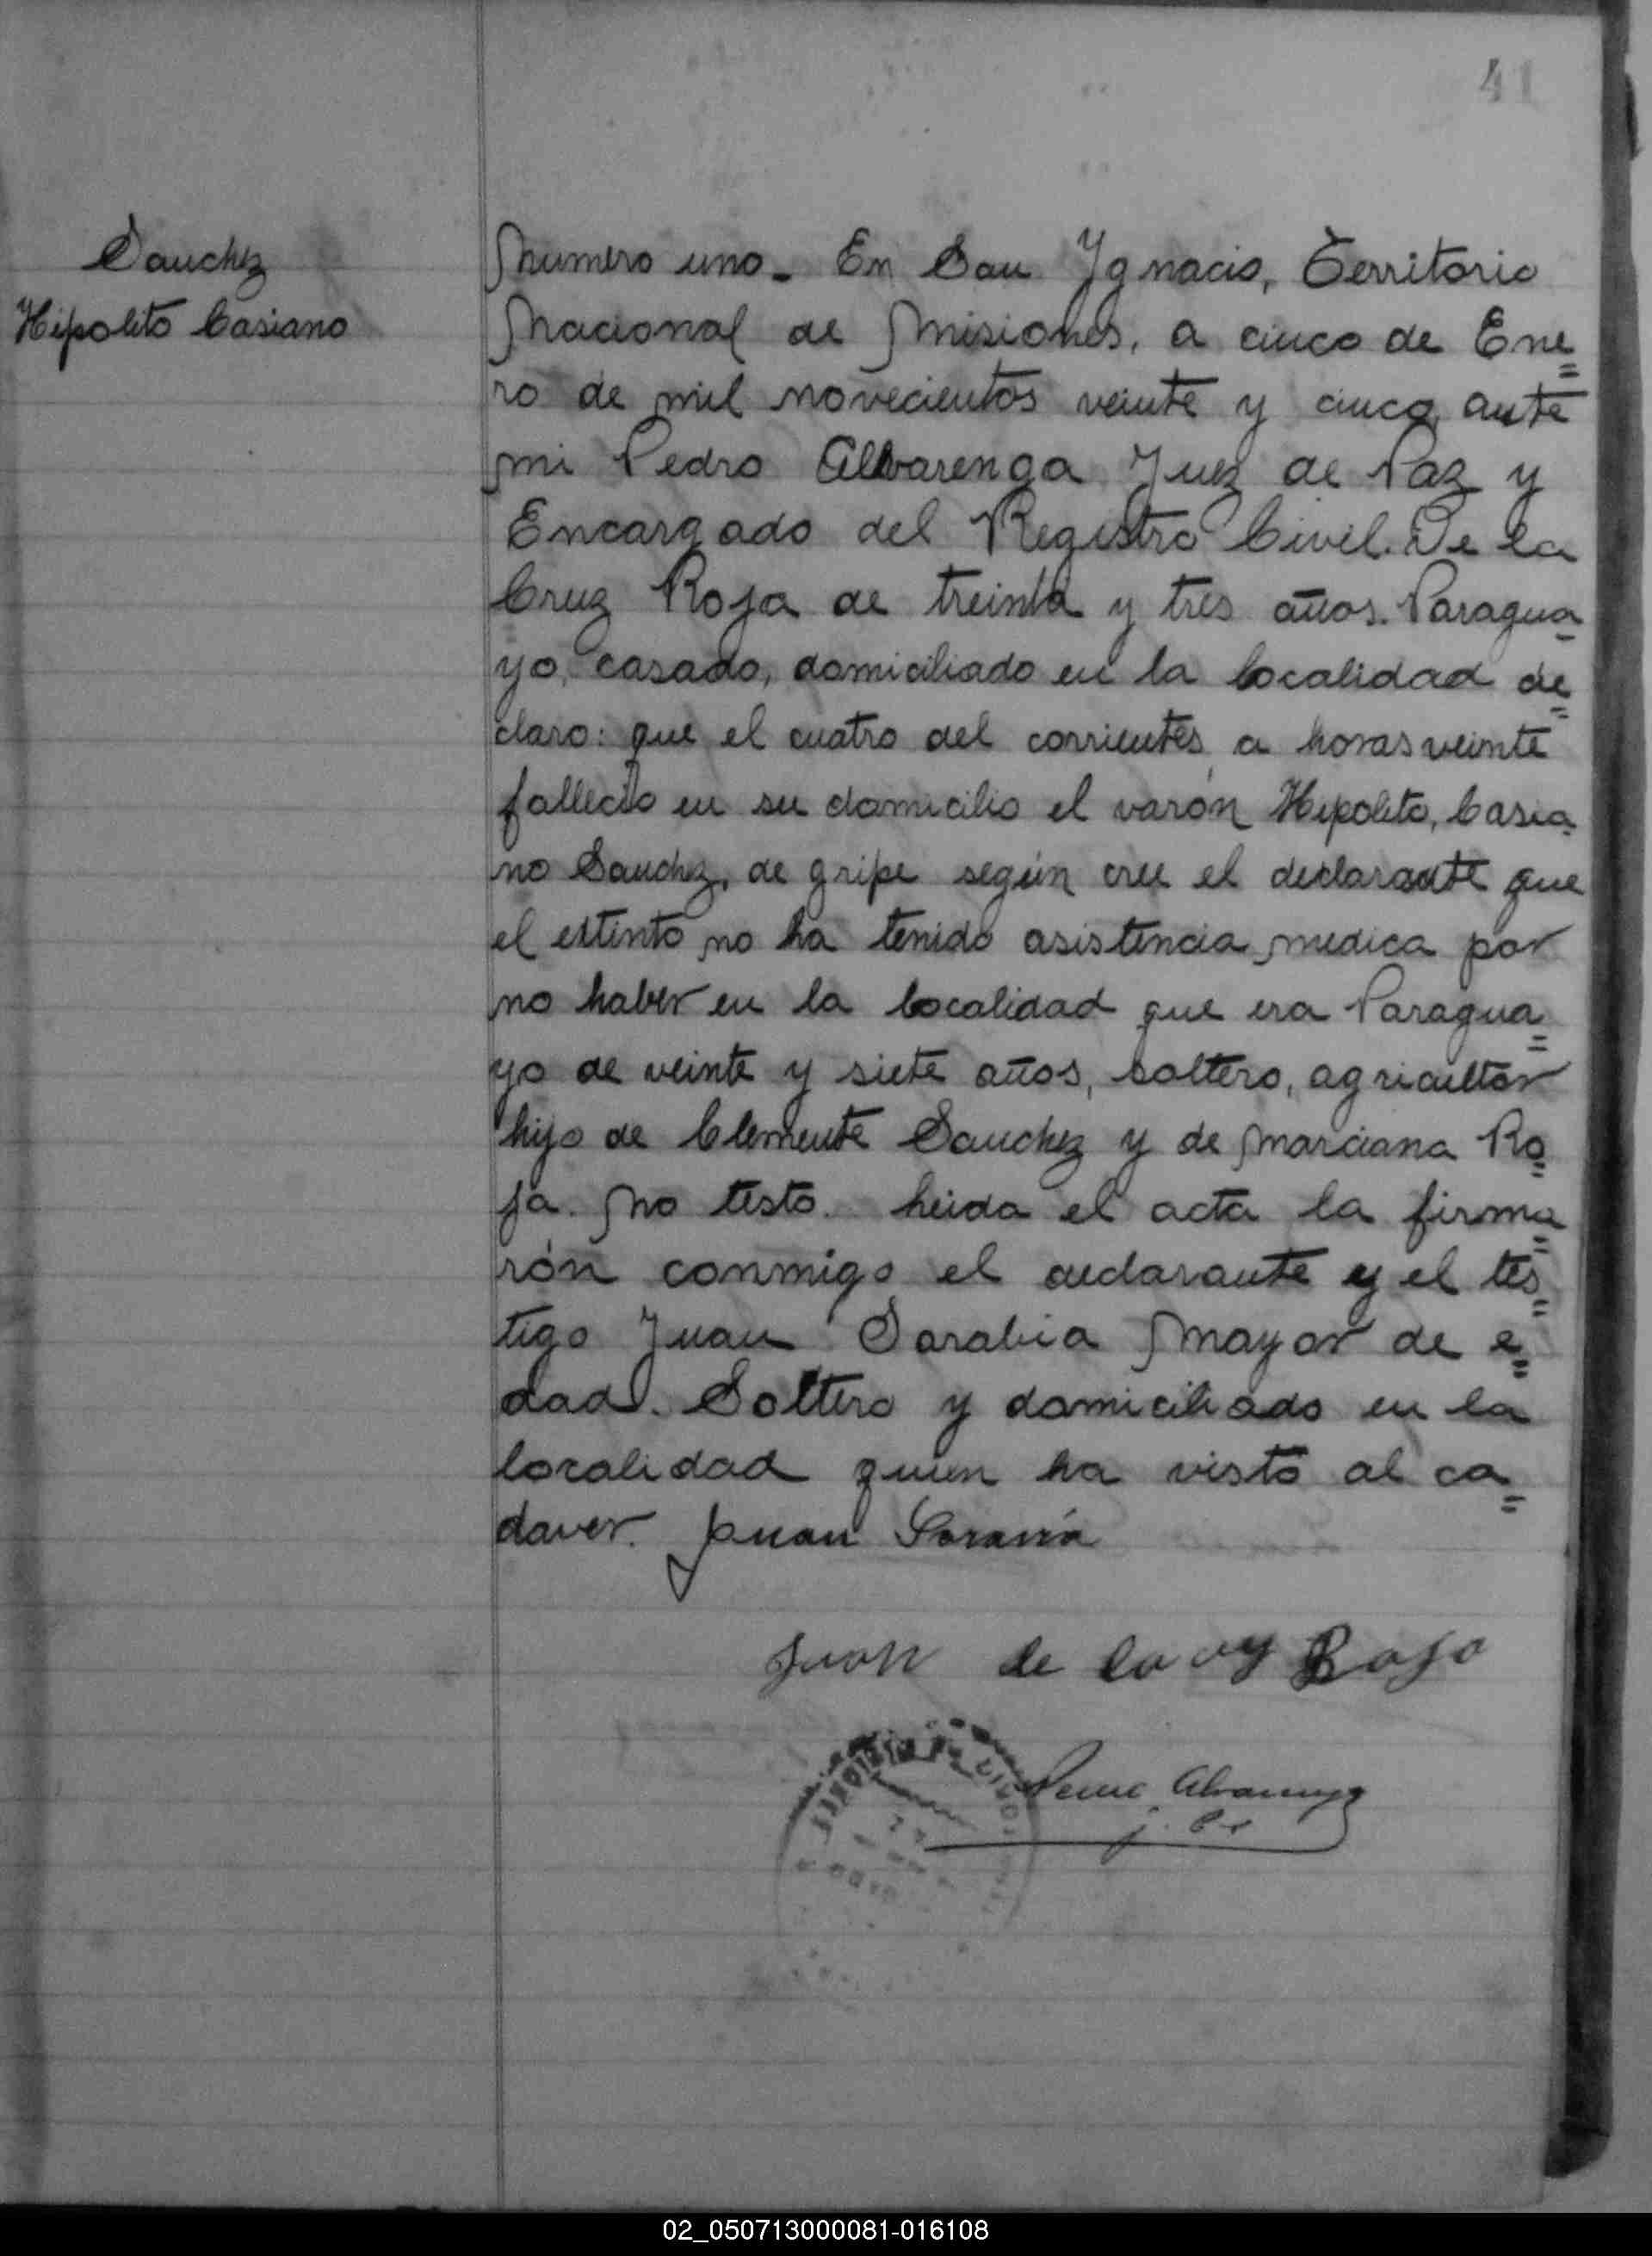 41
Sanchez
Hipolito Casiano
Numero uno. En San Ygnacio, Territorio
Nacional de Misiones, a cinco de Ene=
ro de mil novecientos veinte y cinco, ante
mi Pedro Alvarenga Juez de Paz y
Encargado del Registro Civil. De la
Cruz Roja de treinta y tres años. Paragua-
yo, casado, domiciliado en la localidad de=
claro: que el cuatro del corrientes a horas veinte
fallecio en su domicilio el varón Hipolito, Casia-
no Sanchez, de gripe según cree el declarante que
el extinto no ha tenido asistencia medica por
no haber en la localidad que era Paragua=
yo de veinte y siete años, soltero, agricultor
hijo de Clemente Sanchez y de Marciana Ro=
ja. No testo. Leida el acta la firma=
rón conmigo el declarante y el tes=
tigo Juan Sarabia Mayor de e=
dad. Soltero y domiciliado en la
localidad quien ha visto al ca=
daver. Juan Saravia
Juan de la Roja
Alvarenga
02_050713000081-016108